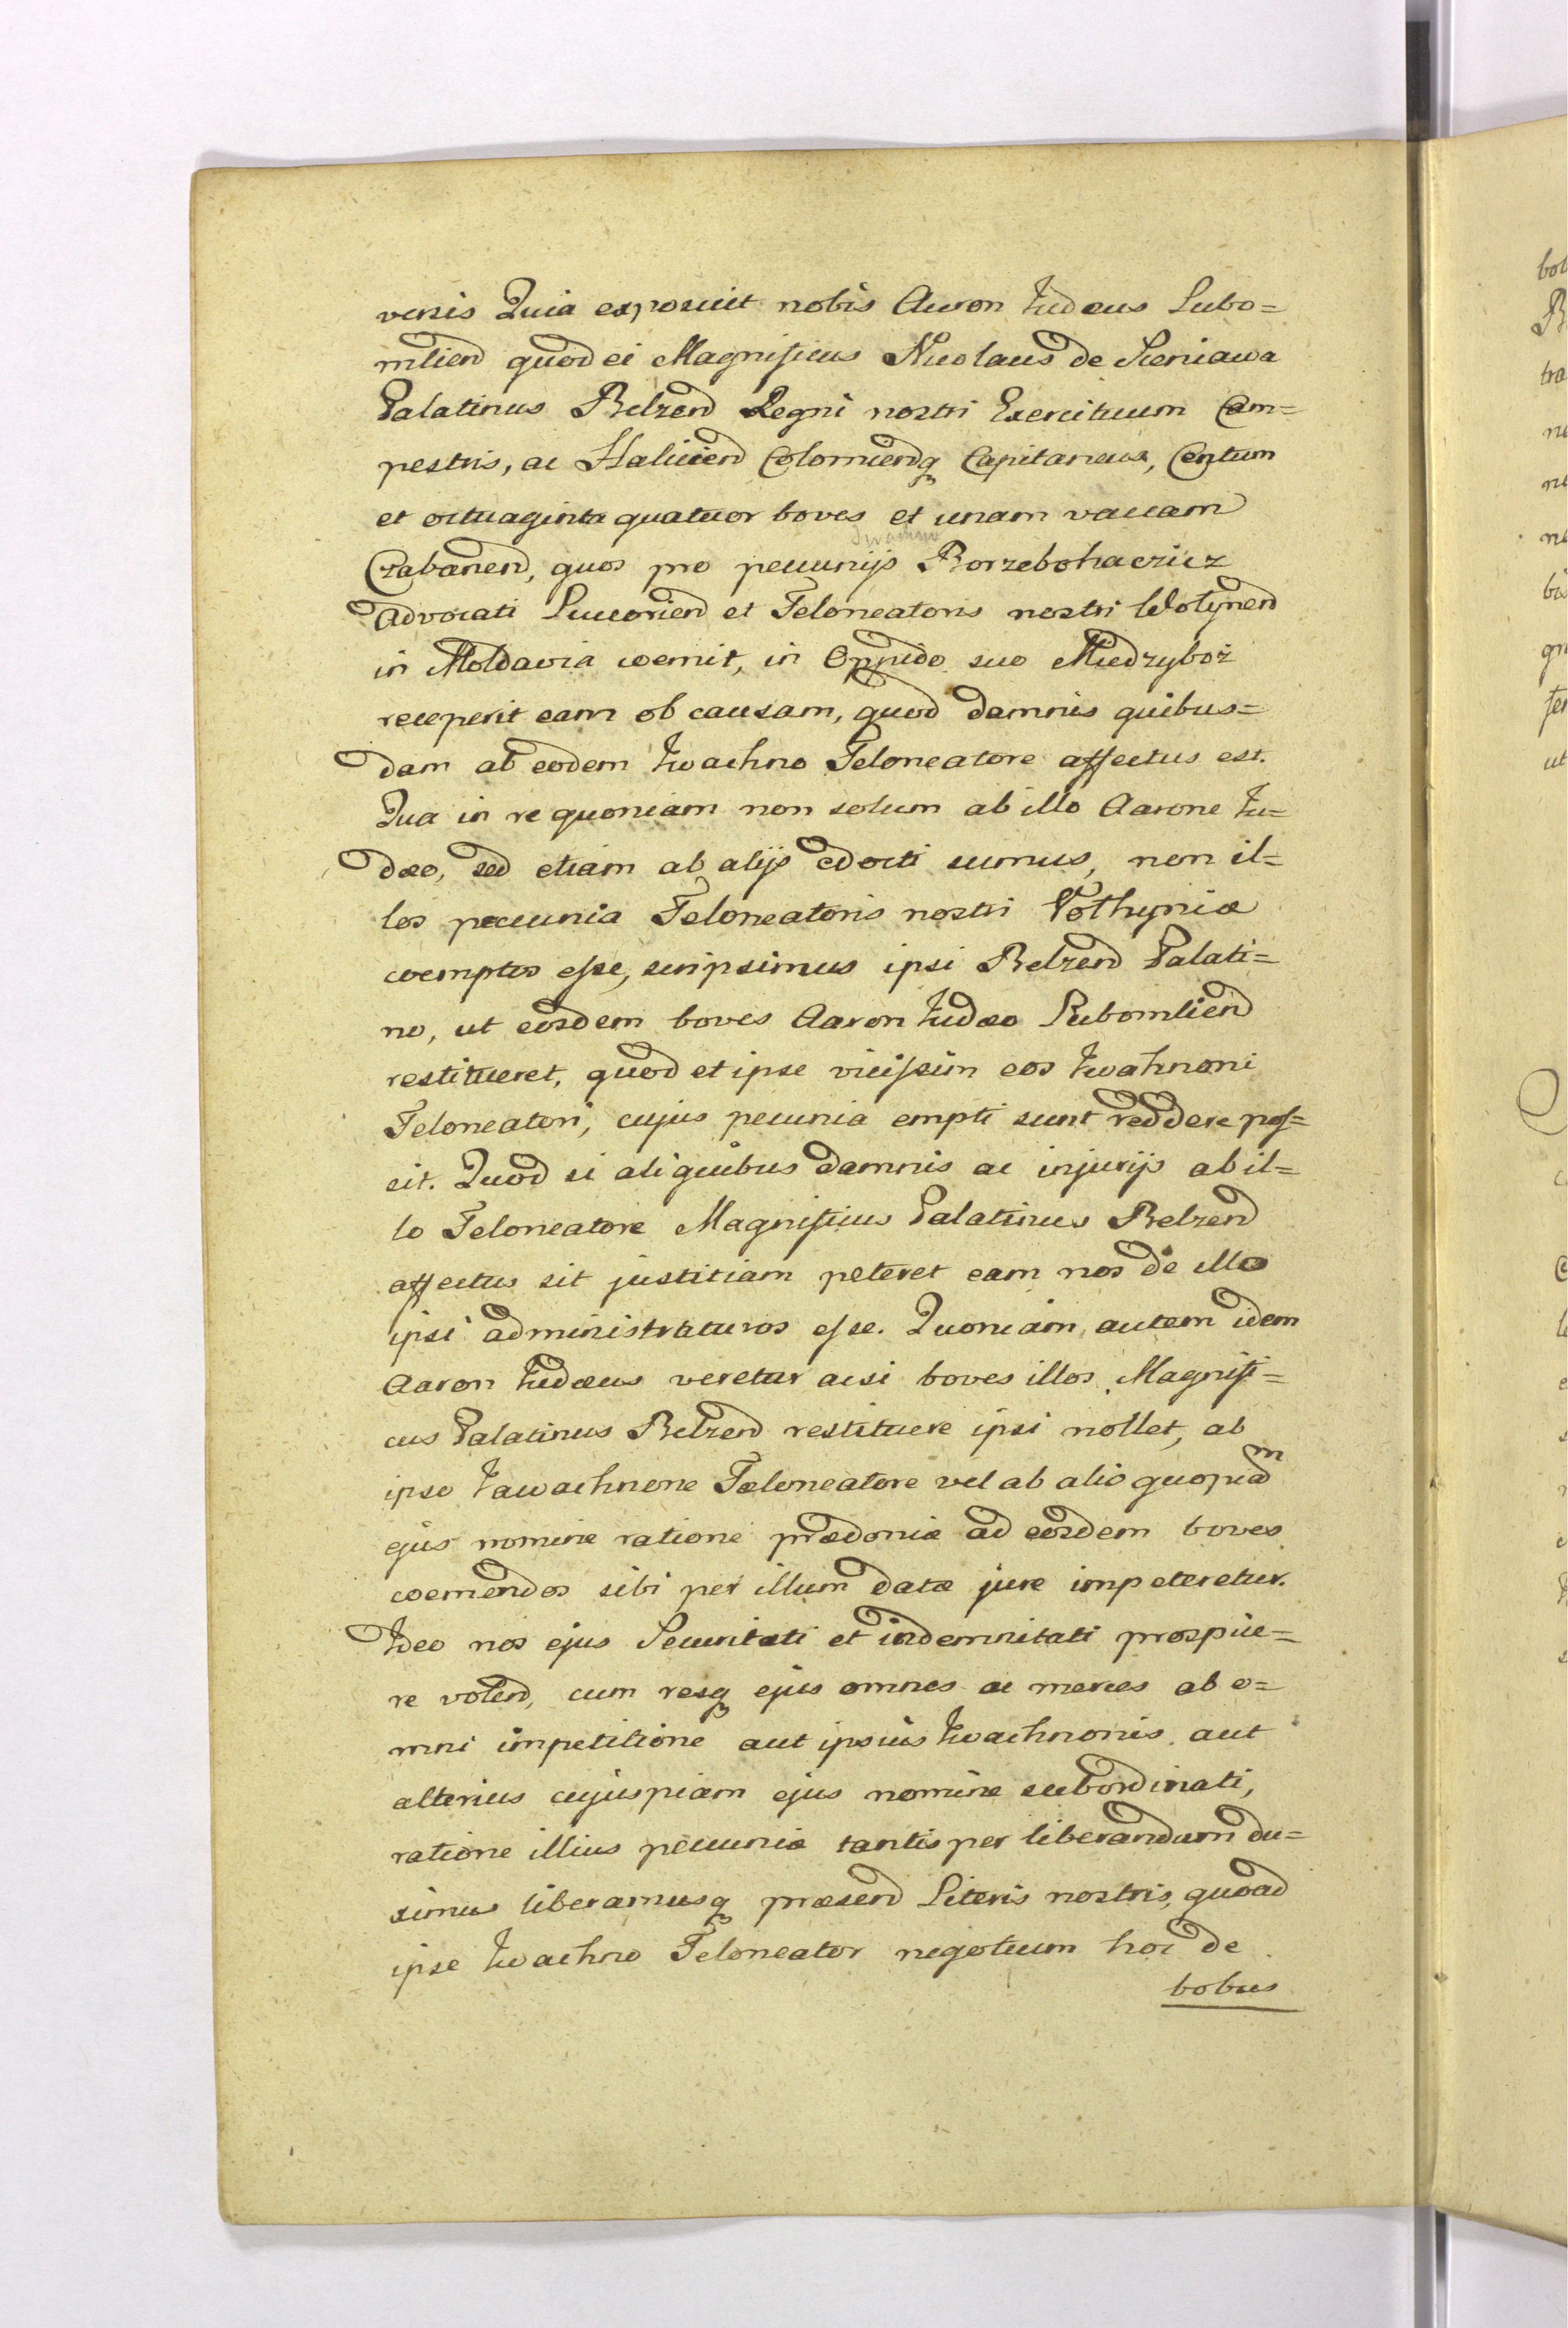 versis Quia exposuit nobis Aaron Iudeus Lubo=
mlien̄ quod ei Magnificus Nicolaus de Sieniawa
Palatinus Belzen̄ Regni nostri Exercituum Cam=
pestris, ac Halicien̄ Colomien̄q Capitaneus, Centum
et octuaginta quatuor boves et unam vaccam
Iwachno
Czabanen̄, quos pro pecunijs Borzebohaczicz
Advocati Luceorien̄ et Teloneatoris nostri Wolynen̄
in Moldavia coemit, in Oppido suo Miedzyboż
receperit eam ob causam, quod damnis quibus=
dam ab eodem Iwachno Teloneatore affectus est.
Qua in re quoniam non solum ab illo Aarone Iu=
dæo, sed etiam ab alijs edocti sumus, non il=
los pecunia Teloneatoris nostri Volhyniæ
coemptos esse, scripsimus ipsi Belzen̄ Palati=
no, ut eosdem boves Aaron Iudæo Lubomlien̄
restitueret, quod et ipse vicissim eos Iwahnoni
Teloneatori, cujus pecunia empti sunt reddere pos=
sit. Quod si aliquibus damnis ac injurijs ab il=
lo Teloneatore Magnificus Palatinus Belzen̄
affectus sit justitiam peteret eam nos de illo
ipsi administraturos esse. Quoniam autem idem
Aaron Iudæus veretur acsi boves illos Magnifi=
cus Palatinus Belzen̄ restituere ipsi nollet, ab
ipso Iawachnone Tæloneatore vel ab alio quopiam
ejus nomine ratione prædoniæ ad eosdem boves
coemendos sibi per illum datæ jure impeteretur.
Ideo nos ejus Securitati et indemnitati prospice=
re volen̄, eum resq ejus omnes ac merces ab o=
mni impetitione aut ipsius Iwachnonis aut
alterius cujuspiam ejus nomine subordinati,
ratione illius pecuniæ tantisper liberandum du=
simus liberamusq præsen̄ Literis nostris, quoad
ipse Iwachno Teloneator negotium hoc de
bobus